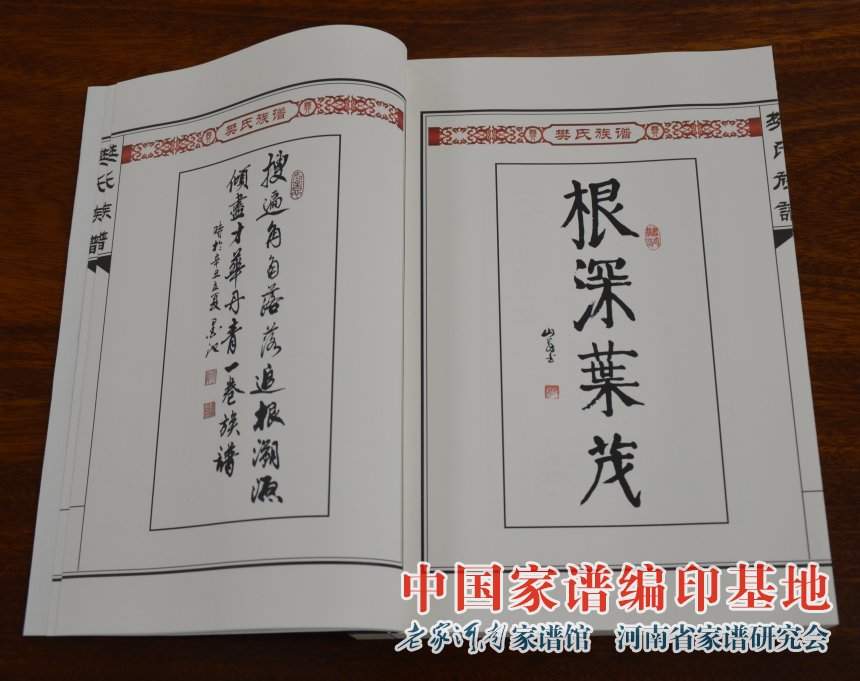 樊氏族谱
樊氏族譜
搜遍角角落落追根溯源
倾盡才華丹青一卷族譜
時於辛丑立夏
樊氏族谱
樊氏族譜
根深葉茂
中国家谱编印基地
老家河南家谱馆 河南省家谱研究会